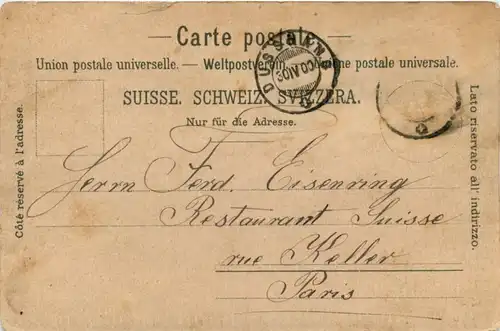 Carte postale.
Union postale universelle. — Weltpostverein. postale universale.
SUISSE. SCHWEIZ. SVIZZERA.
Nur für die Adresse.
DUSSNANG
30 IV 00
Côté réservé à l'adresse.
Lato riservato all' indirizzo.
Herrn Ferd. Eisenring
Restaurant Suisse
rue Keller
Paris